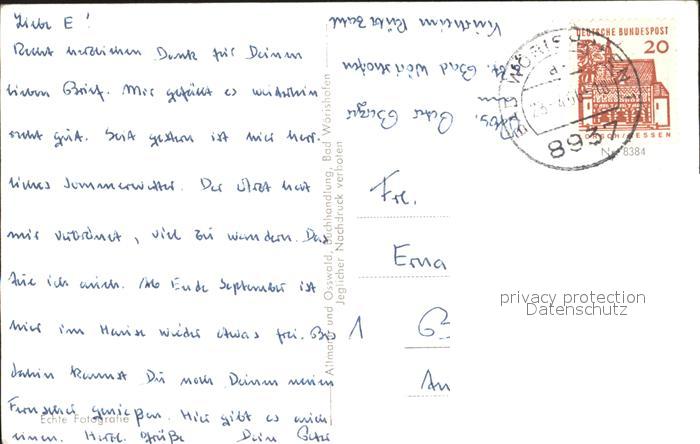 Liebe E !
Recht herzlichen Dank für Deinen
lieben Brief. Mir gefällt es weiterhin
recht gut. Seit gestern ist hier herr-
liches Sommerwetter. Der Arzt hat
mir verordnet, viel zu wandern. Das
tue ich auch. Ab Ende September ist
hier im Hause wieder etwas frei. Bis
dahin kannst Du noch Deinen neuen
Fernseher genießen. Hier gibt es auch
einen. Herzl. Grüße Dein Peter
Echte Fotografie
Altmann und Osswald, Buchhandlung, Bad Wörishofen
Jeglicher Nachdruck verboten
Abs. Peter
Bad Wörishofen
Kurheim
DEUTSCHE BUNDESPOST
20
LORSCH/HESSEN
BAD WÖRISHOFEN 1
8937
Nr. 8384
Frl.
Erna
1 B
An
privacy protection
Datenschutz